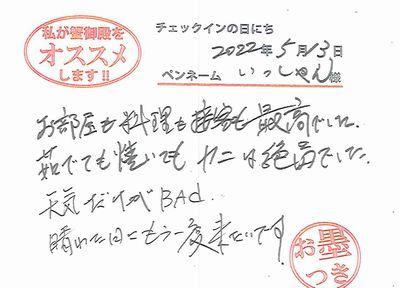 私が蟹御殿を
オススメ
します!!
チェックインの日にち
2022年5月13日
ペンネーム いっしゃん様
お部屋も料理も接客も最高でした。
茹でても焼いてもカニは絶品でした。
天気だけがBAd.
晴れた日にもう一度来たいです。
お墨
つき